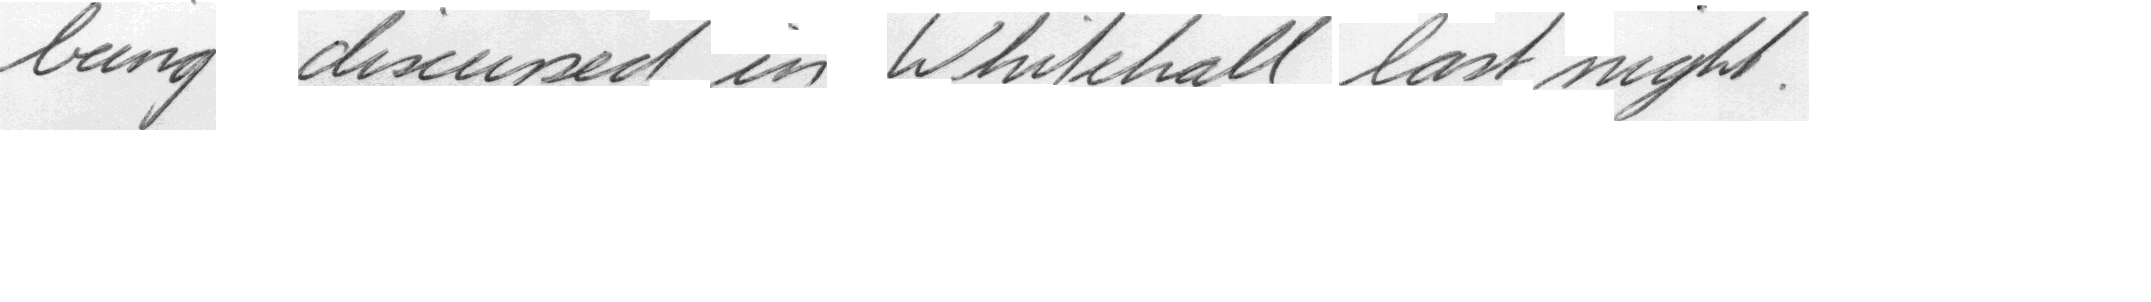 being discussed in Whitehall last night.